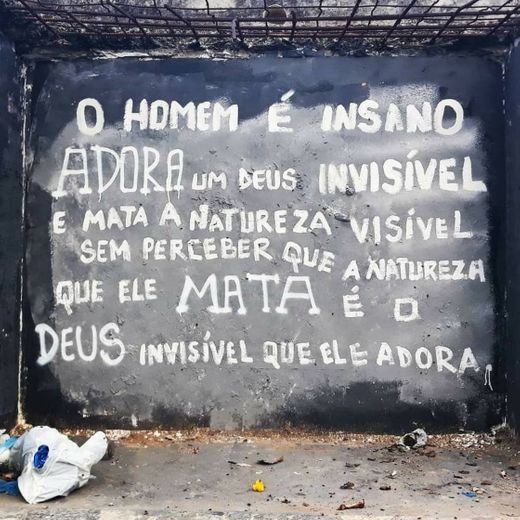 O HOMEM É INSANO
ADORA UM DEUS INVISÍVEL
E MATA A NATUREZA VISÍVEL
SEM PERCEBER QUE A NATUREZA
QUE ELE MATA É O
DEUS INVISÍVEL QUE ELE ADORA.